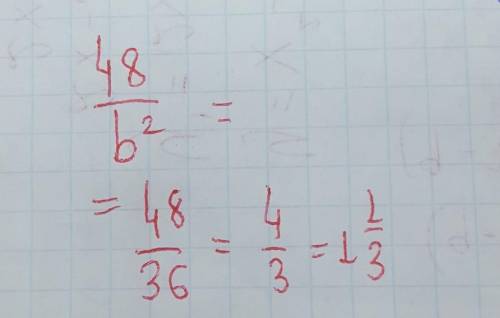 48/b² =
= 48/36 = 4/3 = 1 1/3